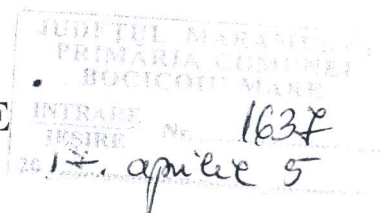 JUDEȚUL MARAMUREȘ
PRIMĂRIA COMUNEI
BOCICOIU MARE
E INTRARE
IEȘIRE Nr. 1637
2017. aprilie 5